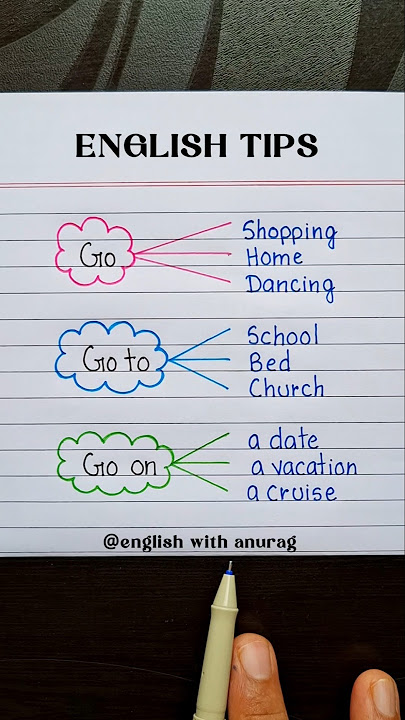 ENGLISH TIPS
Go
Shopping
Home
Dancing
Go to
School
Bed
Church
Go on
a date
a vacation
a cruise
@english with anurag